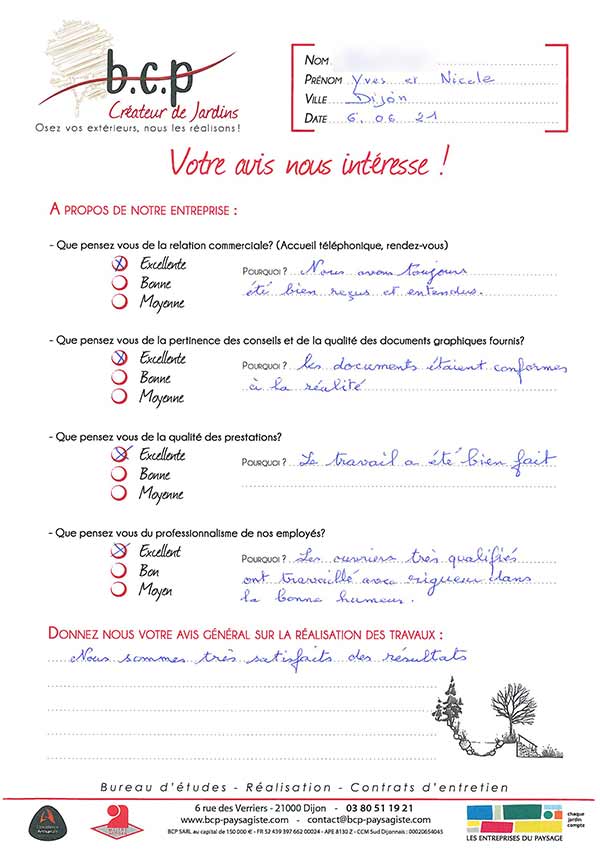 b.c.p
Créateur de Jardins
Osez vos extérieurs, nous les réalisons!
NOM
PRÉNOM Yves et Nicole
VILLE Dijon
DATE 6.06.21
Votre avis nous intéresse !
A PROPOS DE NOTRE ENTREPRISE :
- Que pensez vous de la relation commerciale? (Accueil téléphonique, rendez-vous)
Excellente
Bonne
Moyenne
POURQUOI ? Nous avons toujours
été bien reçus et entendus.
- Que pensez vous de la pertinence des conseils et de la qualité des documents graphiques fournis?
Excellente
Bonne
Moyenne
POURQUOI ? Les documents étaient conformes
à la réalité
- Que pensez vous de la qualité des prestations?
Excellente
Bonne
Moyenne
POURQUOI ? Le travail a été bien fait
- Que pensez vous du professionnalisme de nos employés?
Excellent
Bon
Moyen
POURQUOI ? Les ouvriers très qualifiés
ont travaillé avec rigueur dans
la bonne humeur.
DONNEZ NOUS VOTRE AVIS GÉNÉRAL SUR LA RÉALISATION DES TRAVAUX :
Nous sommes très satisfaits des résultats
Bureau d'études - Réalisation - Contrats d'entretien
6 rue des Verriers - 21000 Dijon - 03 80 51 19 21
www.bcp-paysagiste.com - contact@bcp-paysagiste.com
BCP SARL au capital de 150 000 € - FR 52 439 397 662 00024 - APE 8130 Z - CCM Sud Dijonnais : 00020654045
LES ENTREPRISES DU PAYSAGE
chaque
jardin
compte